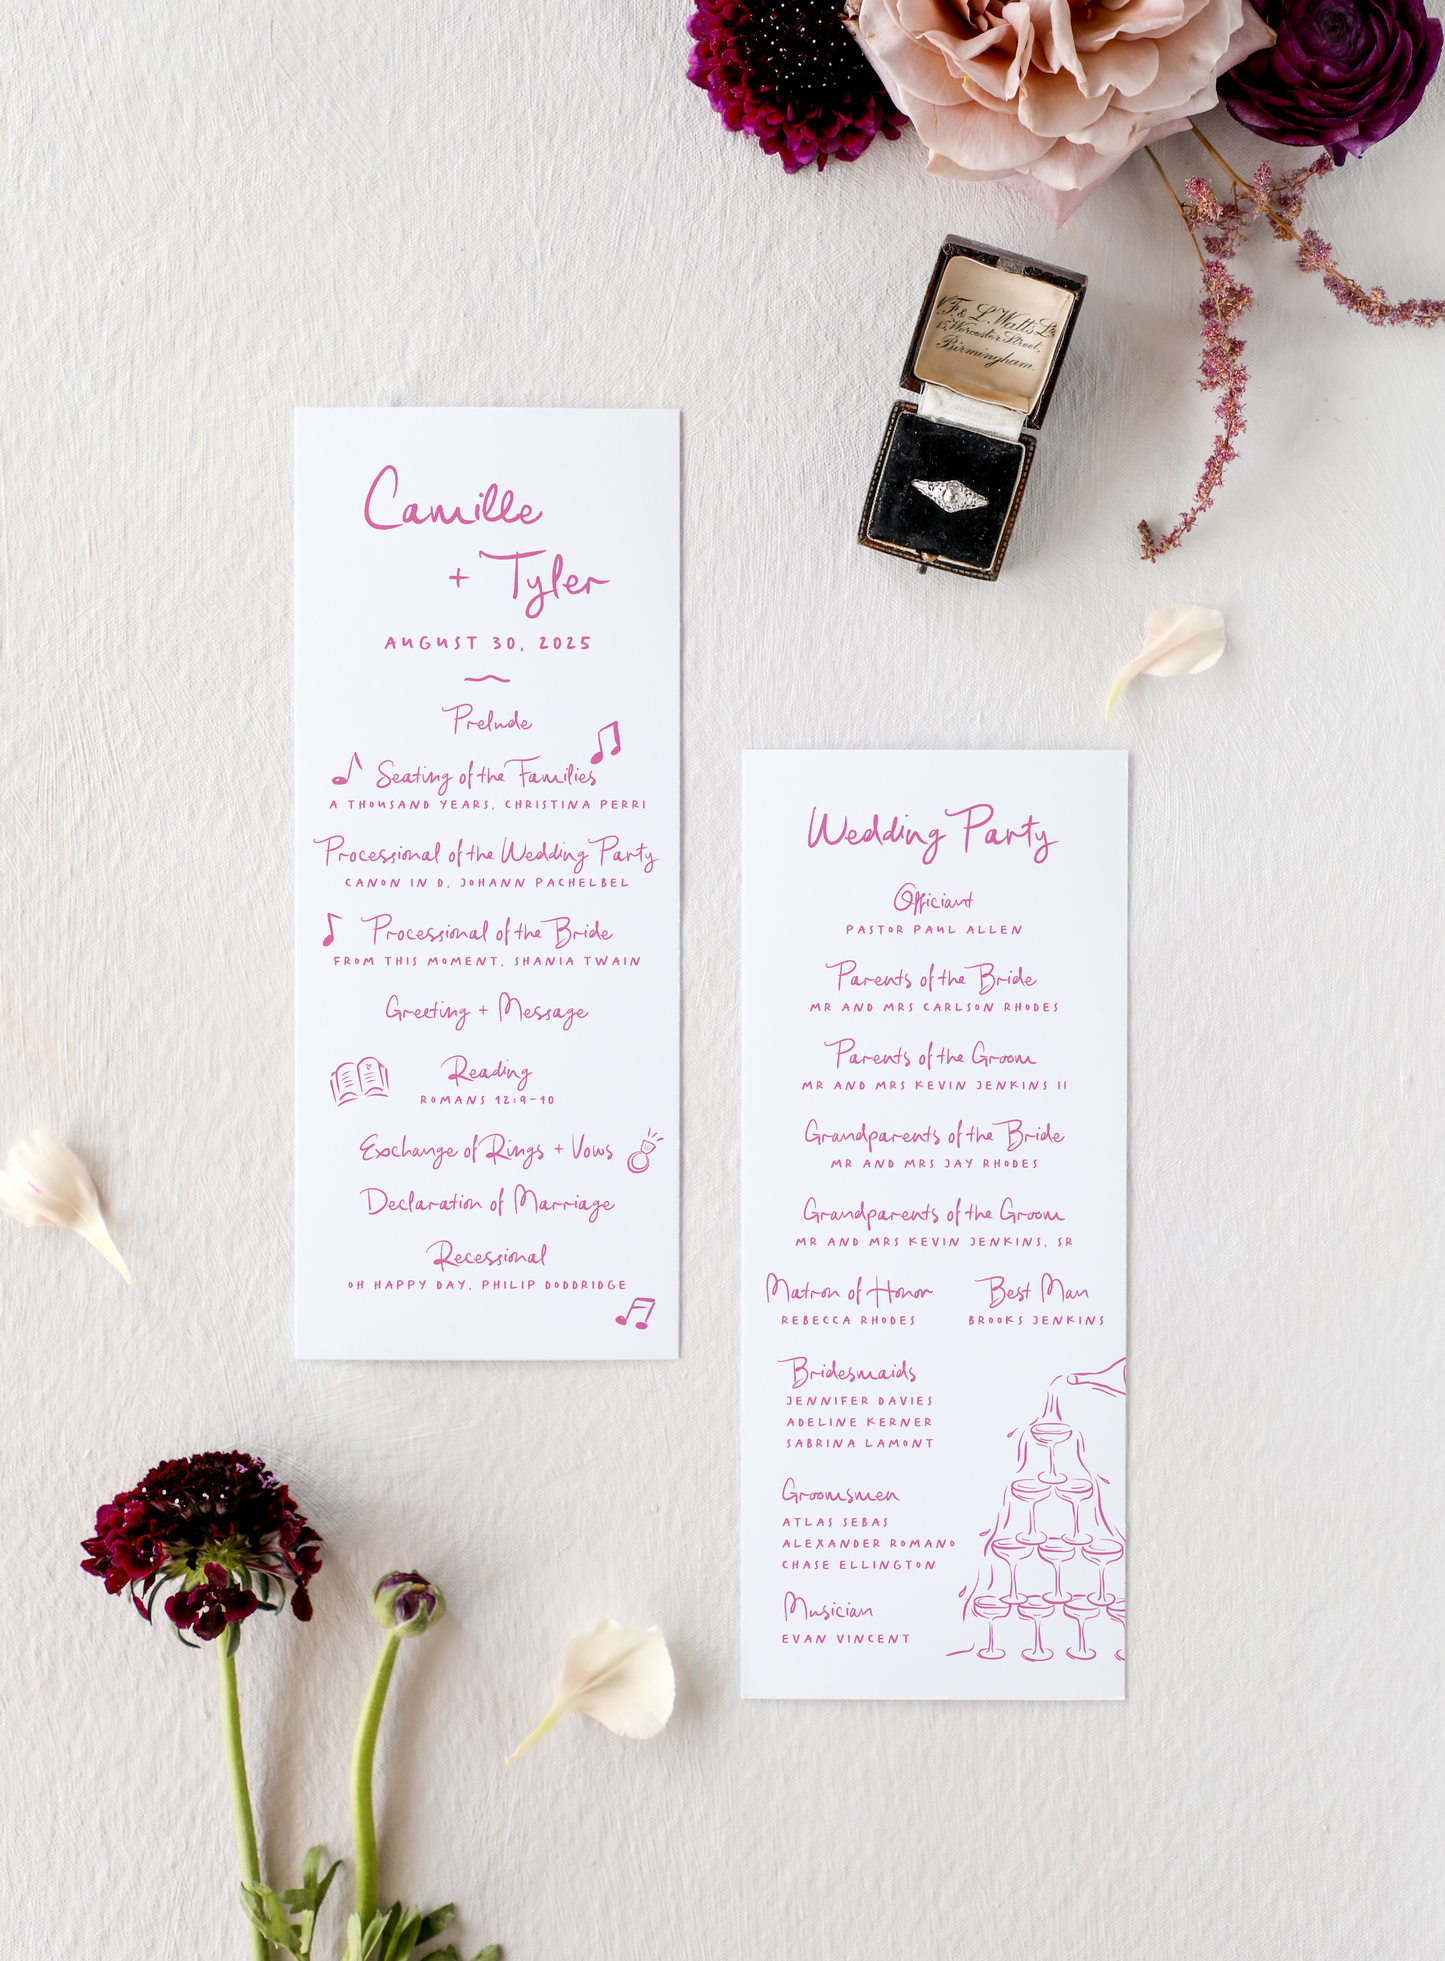 F. & L. Watts Ld
Worcester Street,
Birmingham.
Camille
+ Tyler
AUGUST 30, 2025
Prelude
Seating of the Families
A THOUSAND YEARS, CHRISTINA PERRI
Processional of the Wedding Party
CANON IN D, JOHANN PACHELBEL
Processional of the Bride
FROM THIS MOMENT, SHANIA TWAIN
Greeting + Message
Reading
ROMANS 12:9-10
Exchange of Rings + Vows
Declaration of Marriage
Recessional
OH HAPPY DAY, PHILIP DODDRIDGE
Wedding Party
Officiant
PASTOR PAUL ALLEN
Parents of the Bride
MR AND MRS CARLSON RHODES
Parents of the Groom
MR AND MRS KEVIN JENKINS II
Grandparents of the Bride
MR AND MRS JAY RHODES
Grandparents of the Groom
MR AND MRS KEVIN JENKINS, SR
Matron of Honor
REBECCA RHODES
Best Man
BROOKS JENKINS
Bridesmaids
JENNIFER DAVIES
ADELINE KERNER
SABRINA LAMONT
Groomsmen
ATLAS SEBAS
ALEXANDER ROMANO
CHASE ELLINGTON
Musician
EVAN VINCENT